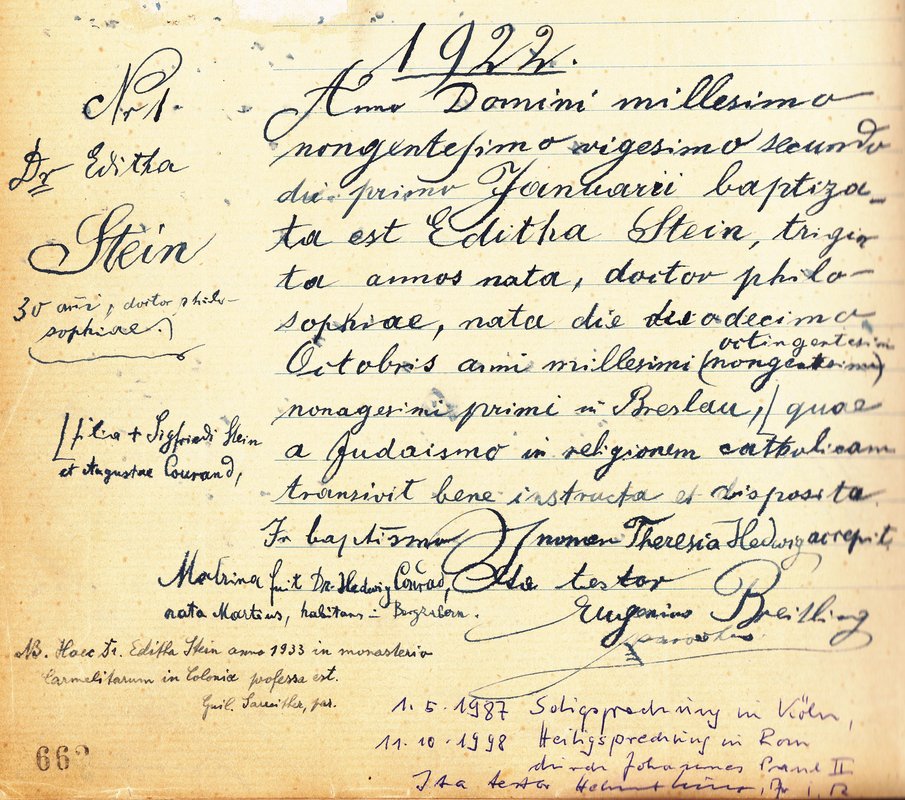 1922.
Nr 1.
Dr Editha
Stein
30 anni, doctor philo-
sophiae.)
[filia + Sigfriedi Stein
et Augustae Courand,
Anno Domini millesimo
nongentesimo vigesimo secundo
die primo Januarii baptiza-
ta est Editha Stein, trigin
ta annos nata, doctor philo-
sophiae, nata die duodecimo
octingentesimi
Octobris anni millesimi (nongentesimi)
nonagesimi primi in Breslau,/ quae
a Judaismo in religionem catholicam
transivit bene instructa et disposita
In baptismo nomen Theresia Hedwig accepit
Matrina fuit Dr. Hedwig Conrad,
nata Martius, habitans in Bergzabern.
Ita testor
Eugenius Breitling
parochus
NB. Haec Dr. Editha Stein anno 1933 in monasterio
Carmelitarum in Colonia professa est.
Guil. par.
1.5.1987 Seligsprechung in Köln,
11.10.1998 Heiligsprechung in Rom
durch Johannes Paul II
Ita testor Helmut
662